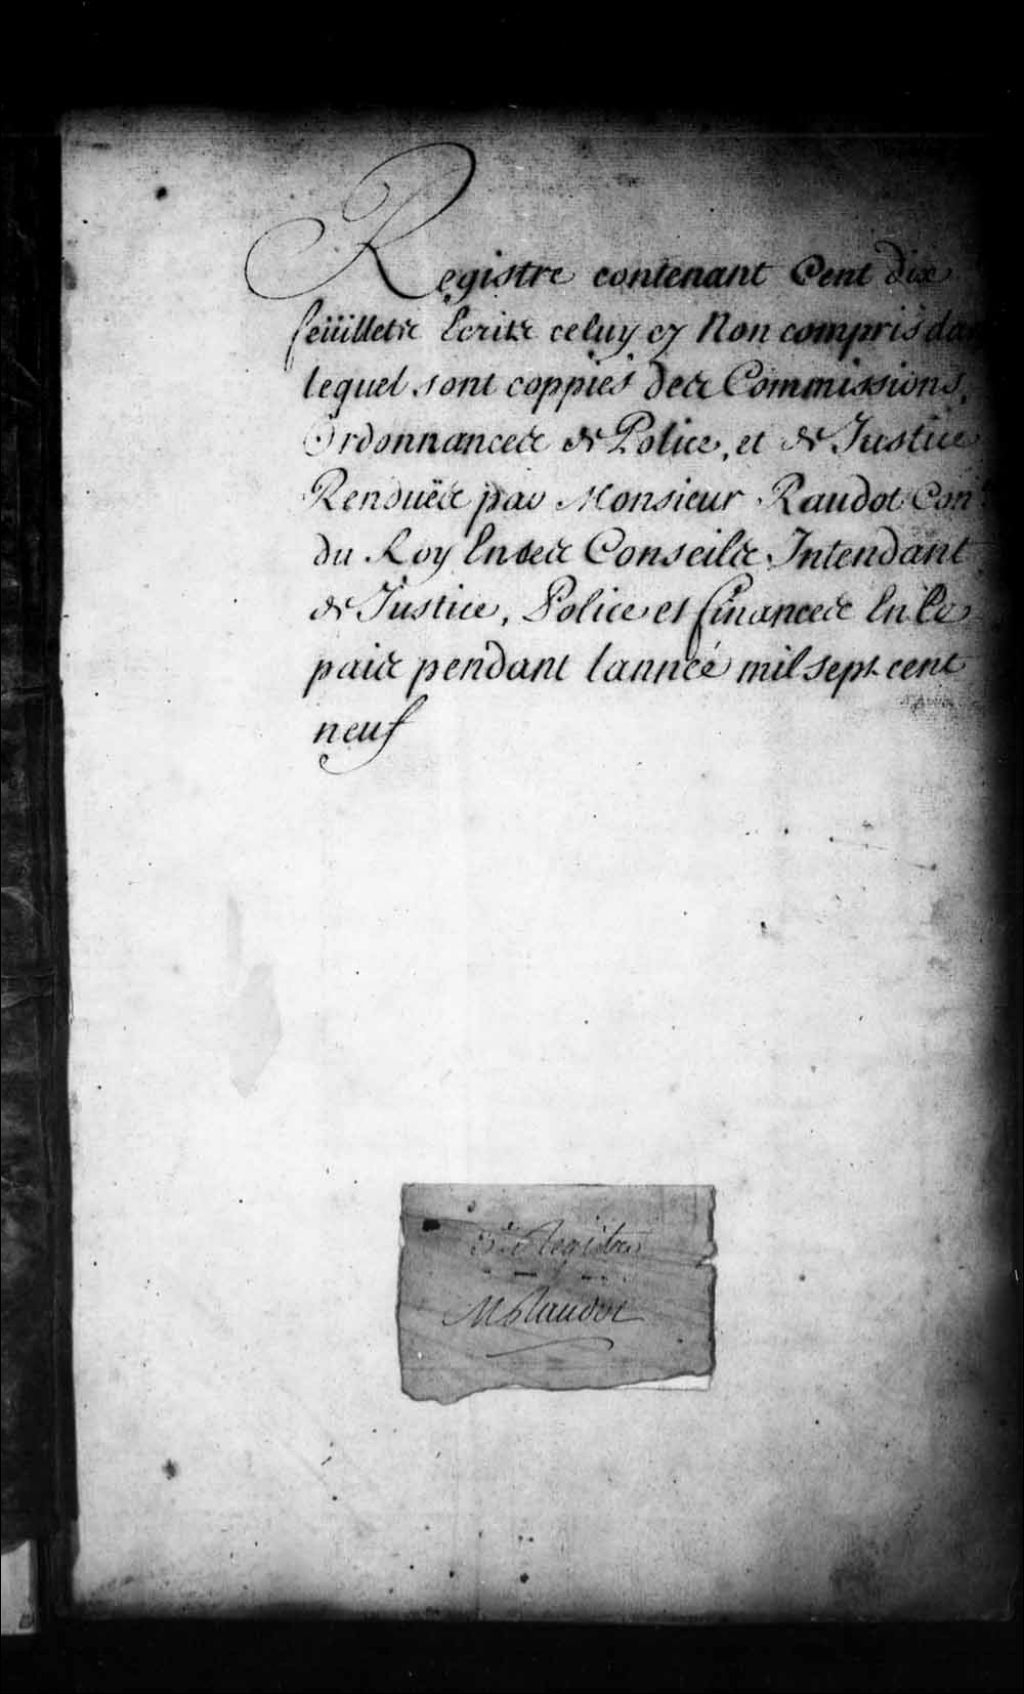 Registre contenant Cent dix
feüillets Ecrits celuy cy Non compris dans
lequel sont coppies des Commissions,
Ordonnances de Police, et de Justice
Renduës par Monsieur Raudot Con.er
du Roy En ses Conseils Intendant
de Justice, Police et finances En Ce
païs pendant lanneé mil sept cent
neuf
3.e Registre
M Raudot